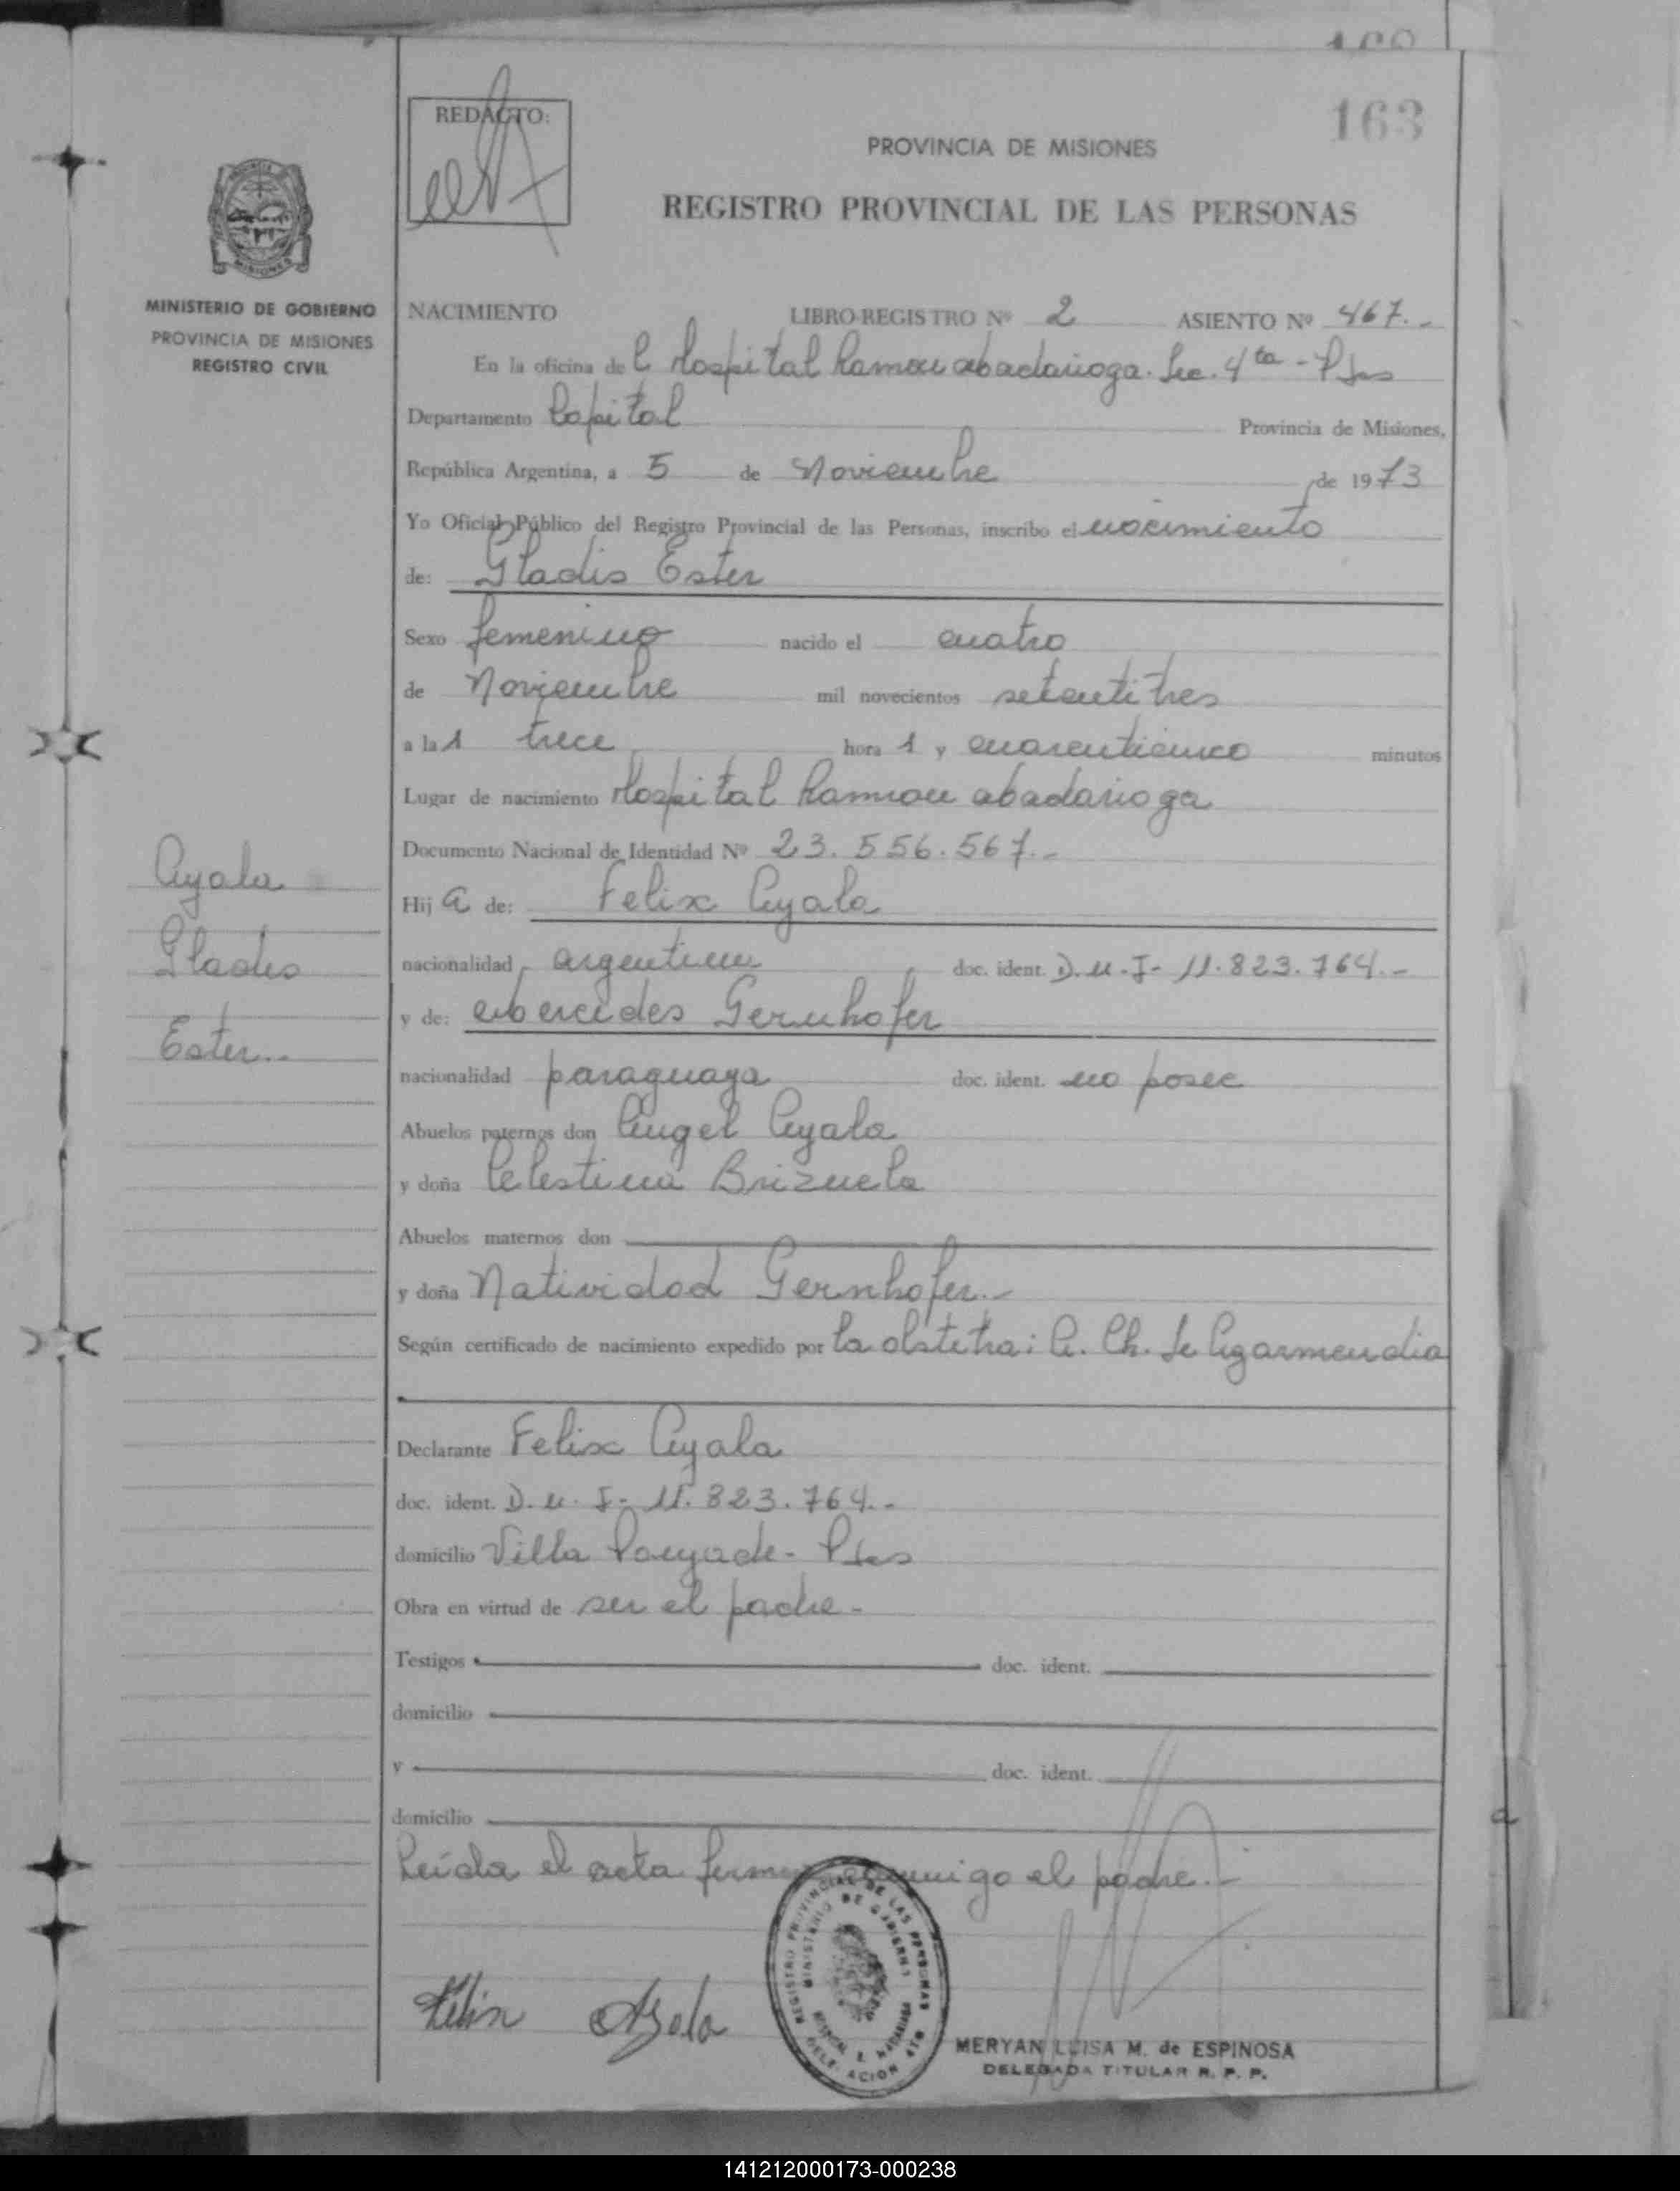 163
REDACTO:
PROVINCIA DE MISIONES
REGISTRO PROVINCIAL DE LAS PERSONAS
MISIONES
MINISTERIO DE GOBIERNO
PROVINCIA DE MISIONES
REGISTRO CIVIL
NACIMIENTO LIBRO-REGISTRO Nº 2 ASIENTO Nº 467.-
En la oficina del Hospital Ramon abadarioga. Sec. 4ta - Pdas
Departamento Capital Provincia de Misiones,
República Argentina, a 5 de Noviembre de 1973
Yo Oficial Público del Registro Provincial de las Personas, inscribo el nacimiento
de: Gladis Ester
Sexo femenino nacido el cuatro
de Noviembre mil novecientos setentitres
a las trece horas y cuarenticinco minutos
Lugar de nacimiento Hospital Ramon abadarioga
Documento Nacional de Identidad Nº 23.556.567.-
Hija de: Felix Ayala
nacionalidad argentina doc. ident. D.N.I- 11.823.764.-
y de: Mercedes Gernhofer
nacionalidad paraguaya doc. ident. no posee
Abuelos paternos don Angel Ayala
y doña Celestina Brizuela
Abuelos maternos don
y doña Natividad Gernhofer.-
Según certificado de nacimiento expedido por la obstetra: A. Ch. de Agarmendia
Declarante Felix Ayala
doc. ident. D.N.I- 11.823.764.-
domicilio Villa Poujade- Pdas
Obra en virtud de ser el padre-
Testigos doc. ident.
domicilio
y doc. ident.
domicilio
Leída el acta firma conmigo el padre.-
Ayala
Gladis
Ester.-
Felix Ayala
REGISTRO PROVINCIAL DE LAS PERSONAS
MINISTERIO DE GOBIERNO
DELEGACION 4TO
MERYAN LUISA M. de ESPINOSA
DELEGADA TITULAR R. P. P.
141212000173-000238